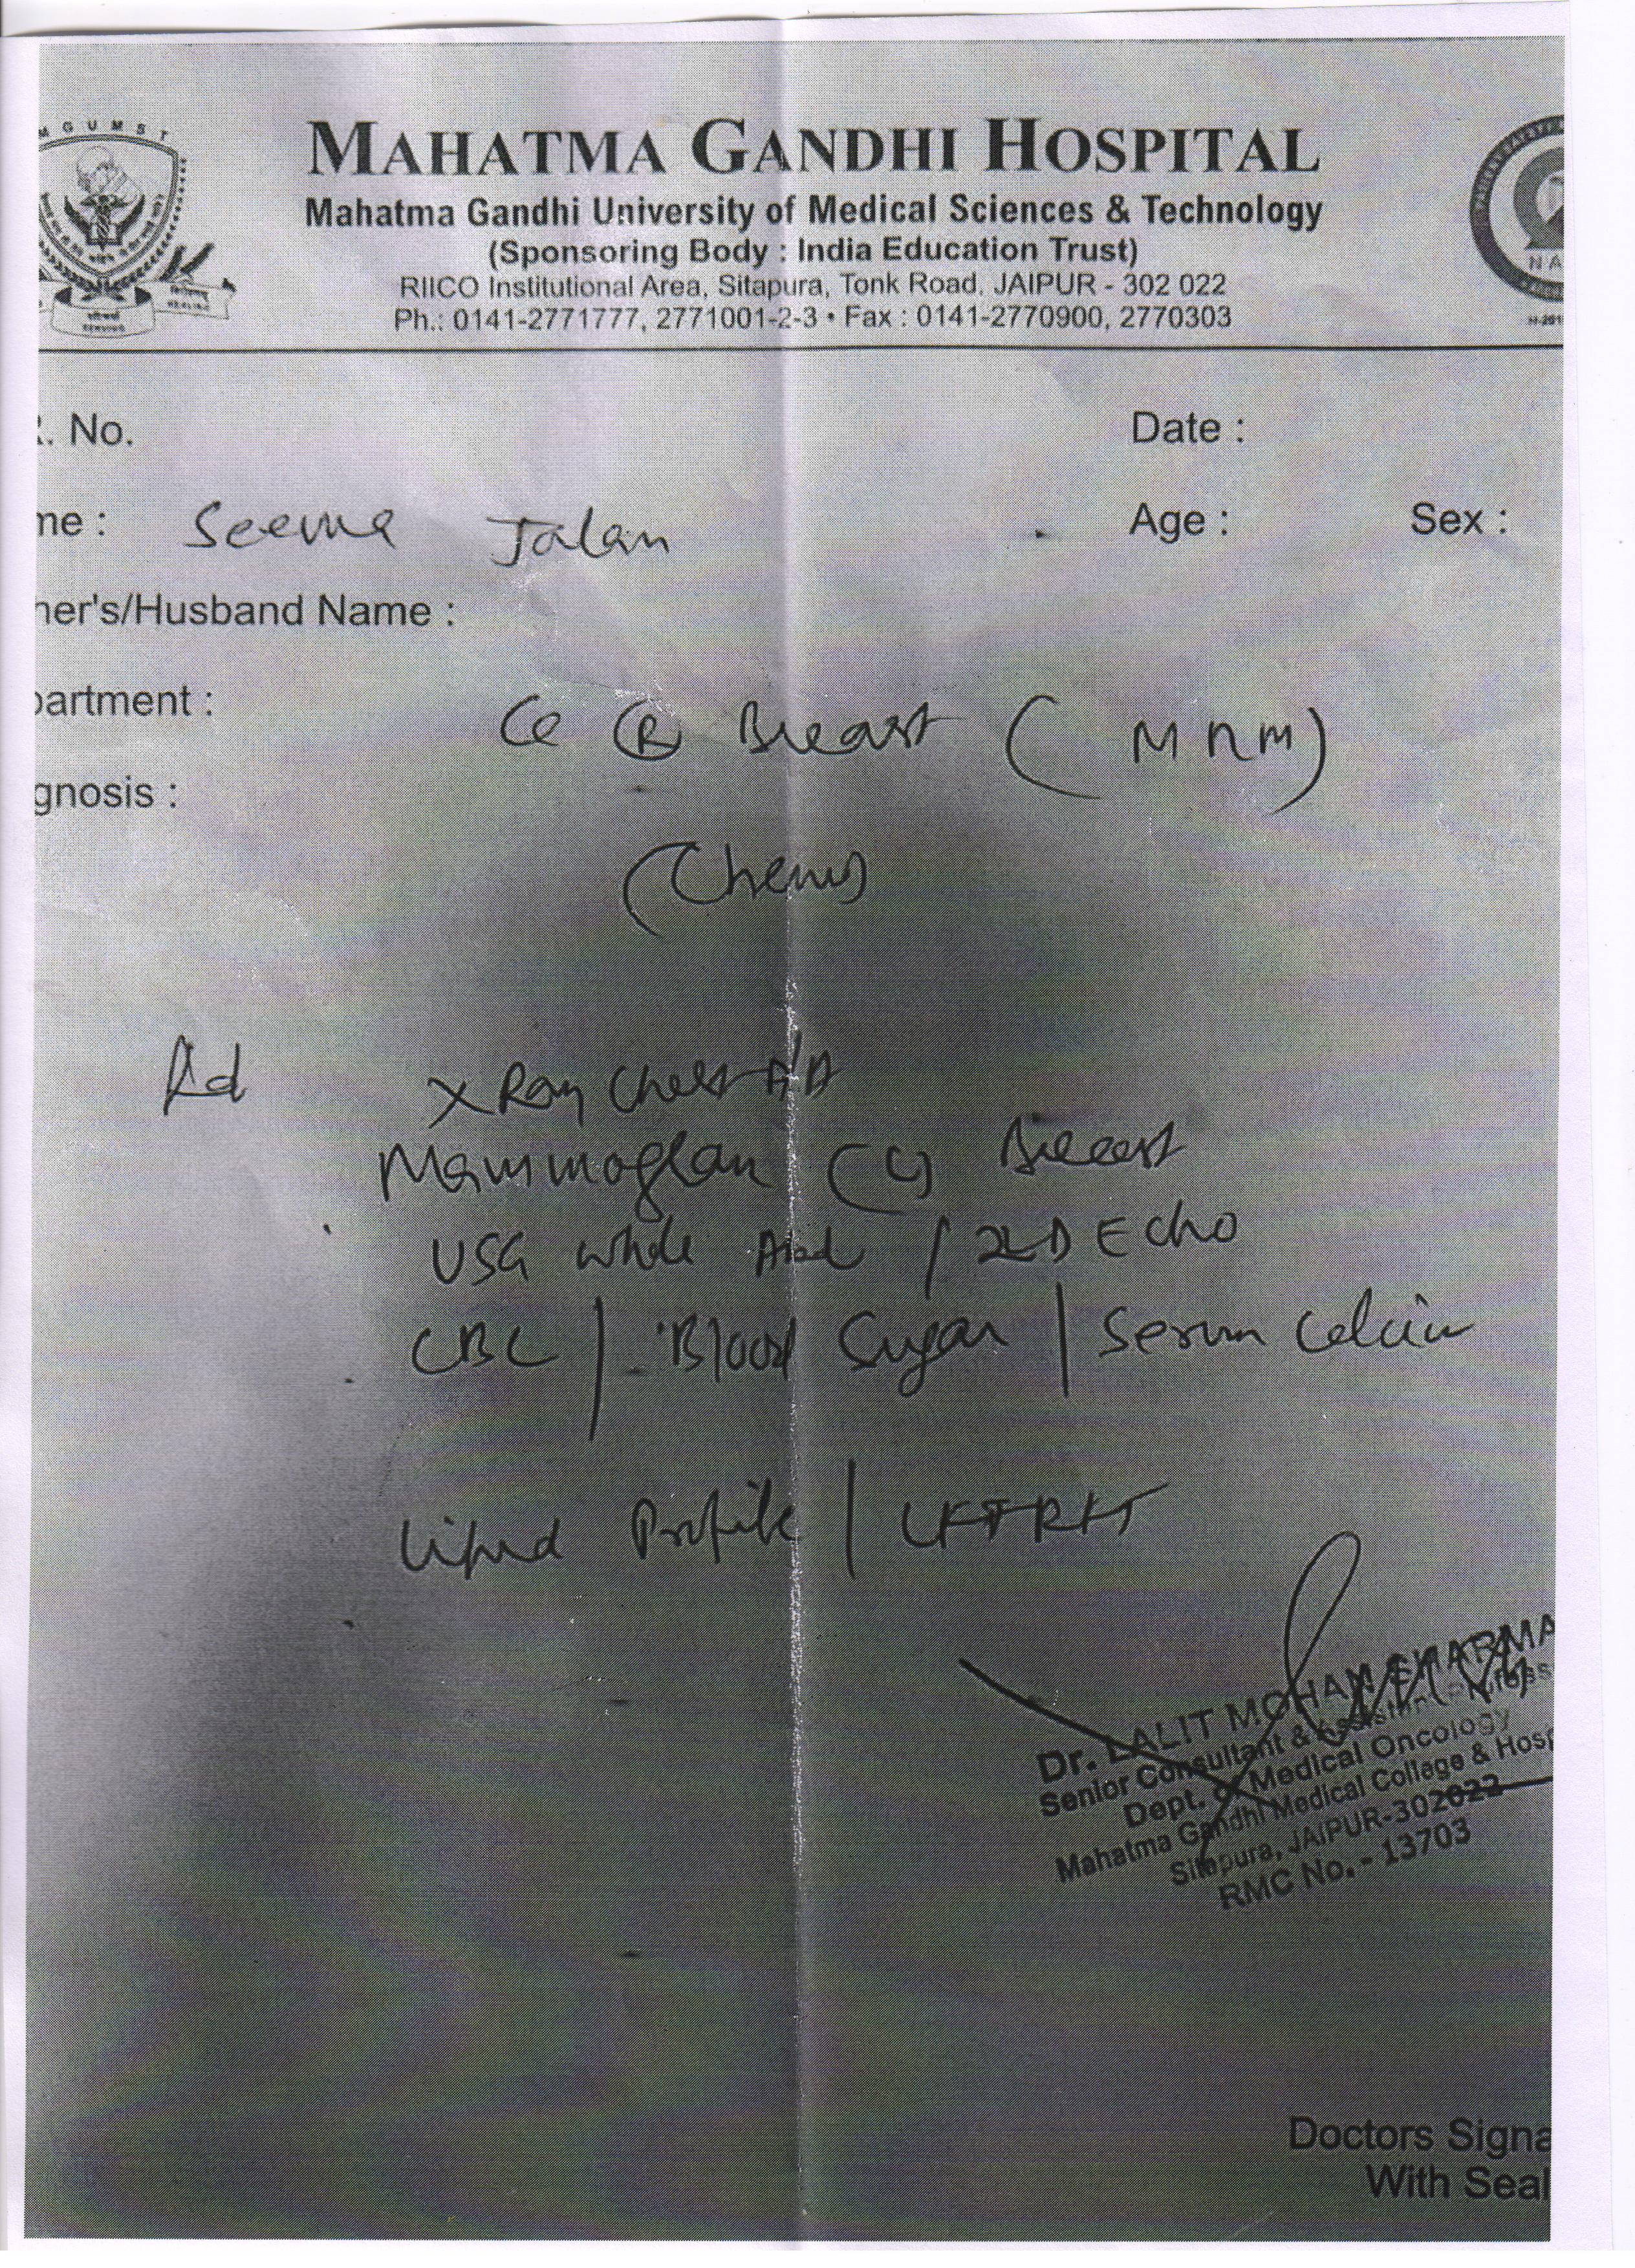 MGUMST
MAHATMA GANDHI HOSPITAL
Mahatma Gandhi University of Medical Sciences & Technology
(Sponsoring Body : India Education Trust)
RIICO Institutional Area, Sitapura, Tonk Road, JAIPUR - 302 022
Ph.: 0141-2771777, 2771001-2-3 • Fax : 0141-2770900, 2770303
SERVING
HEALING
NA
. No.
Date :
me : Seema Jalan
Age :
Sex :
her's/Husband Name :
partment :
Ca (R) Breast (MRM)
gnosis :
(Chemo)
Ad
X Ray Chest
Mammogram (L) Breast
USG whole Abd / 2D Echo
CBC | Blood Sugar | Serum Calcium
Lipid Profile | LFT RFT
Dr. LALIT MOHAN SHARMA
Senior Consultant & Assistant Profess
Dept. of Medical Oncology
Mahatma Gandhi Medical College & Hosp
Sitapura, JAIPUR-302022
RMC No. - 13703
Doctors Signa
With Seal